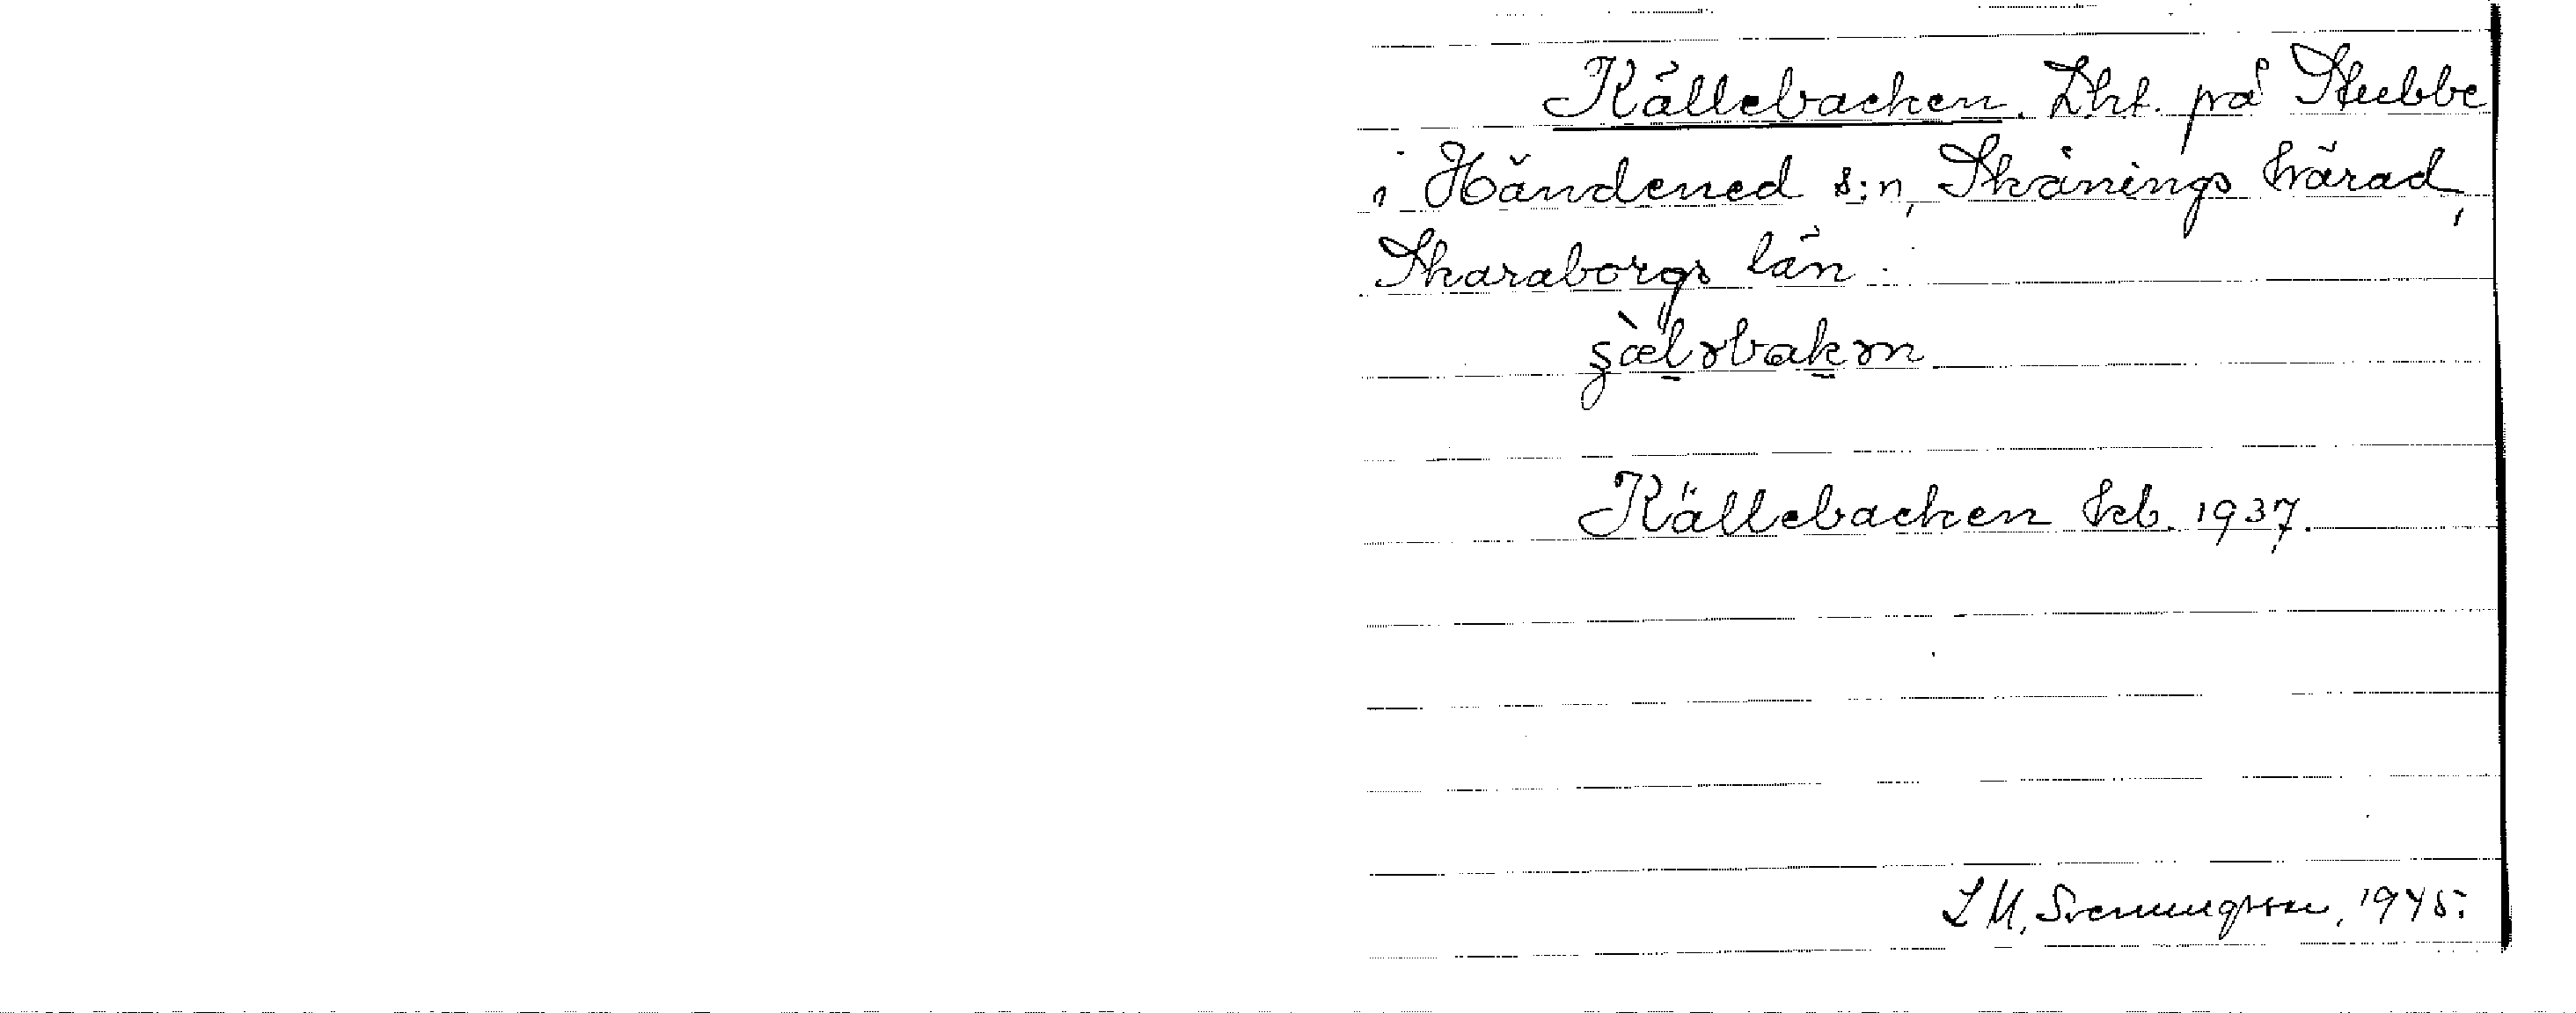 Källebacken. Lht. på Stubbe
i Händened s:n, Skånings härad,
Skaraborgs län.
Källebacken kb. 1937.
L M, Svenungsson, 1945.